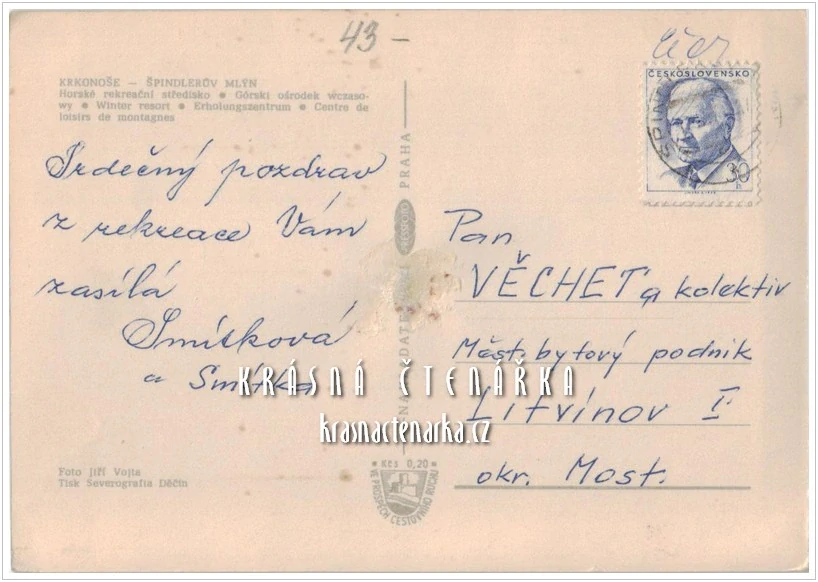 43-
KRKONOŠE – ŠPINDLERŮV MLÝN
Horské rekreační středisko • Górski ośrodek wczaso-
wy • Winter resort • Erholungszentrum • Centre de
loisirs de montagnes
Srdečný pozdrav
z rekreace Vám
zasílá
Smítková
a Smítka
Foto Jiří Vojta
Tisk Severografia Děčín
PRAHA
PRESSFOTO
Kčs 0,20
VE PROSPĚCH CESTOVNÍHO RUCHU
ČESKOSLOVENSKO
30
Pan
VĚCHET a kolektiv
Měst. bytový podnik
Litvínov I
okr. Most.
KRÁSNÁ ČTENÁŘKA
krasnactenarka.cz